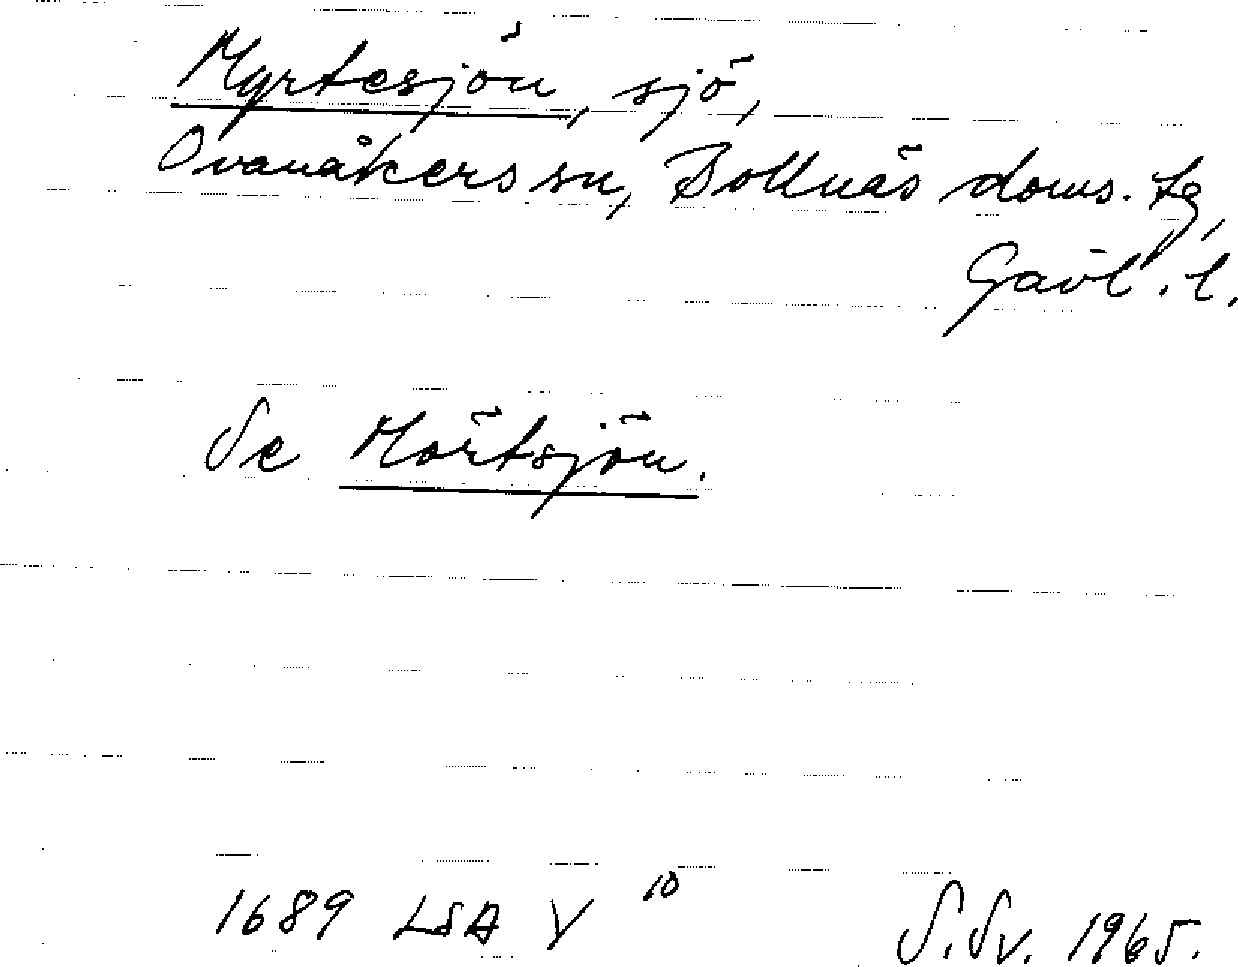 Myrtesjön, sjö,
Ovanåkers sn, Bollnäs doms. tg,
Gävl. l.
Se Mörtsjön.
1689 LSA V 10 S. Sv. 1965.